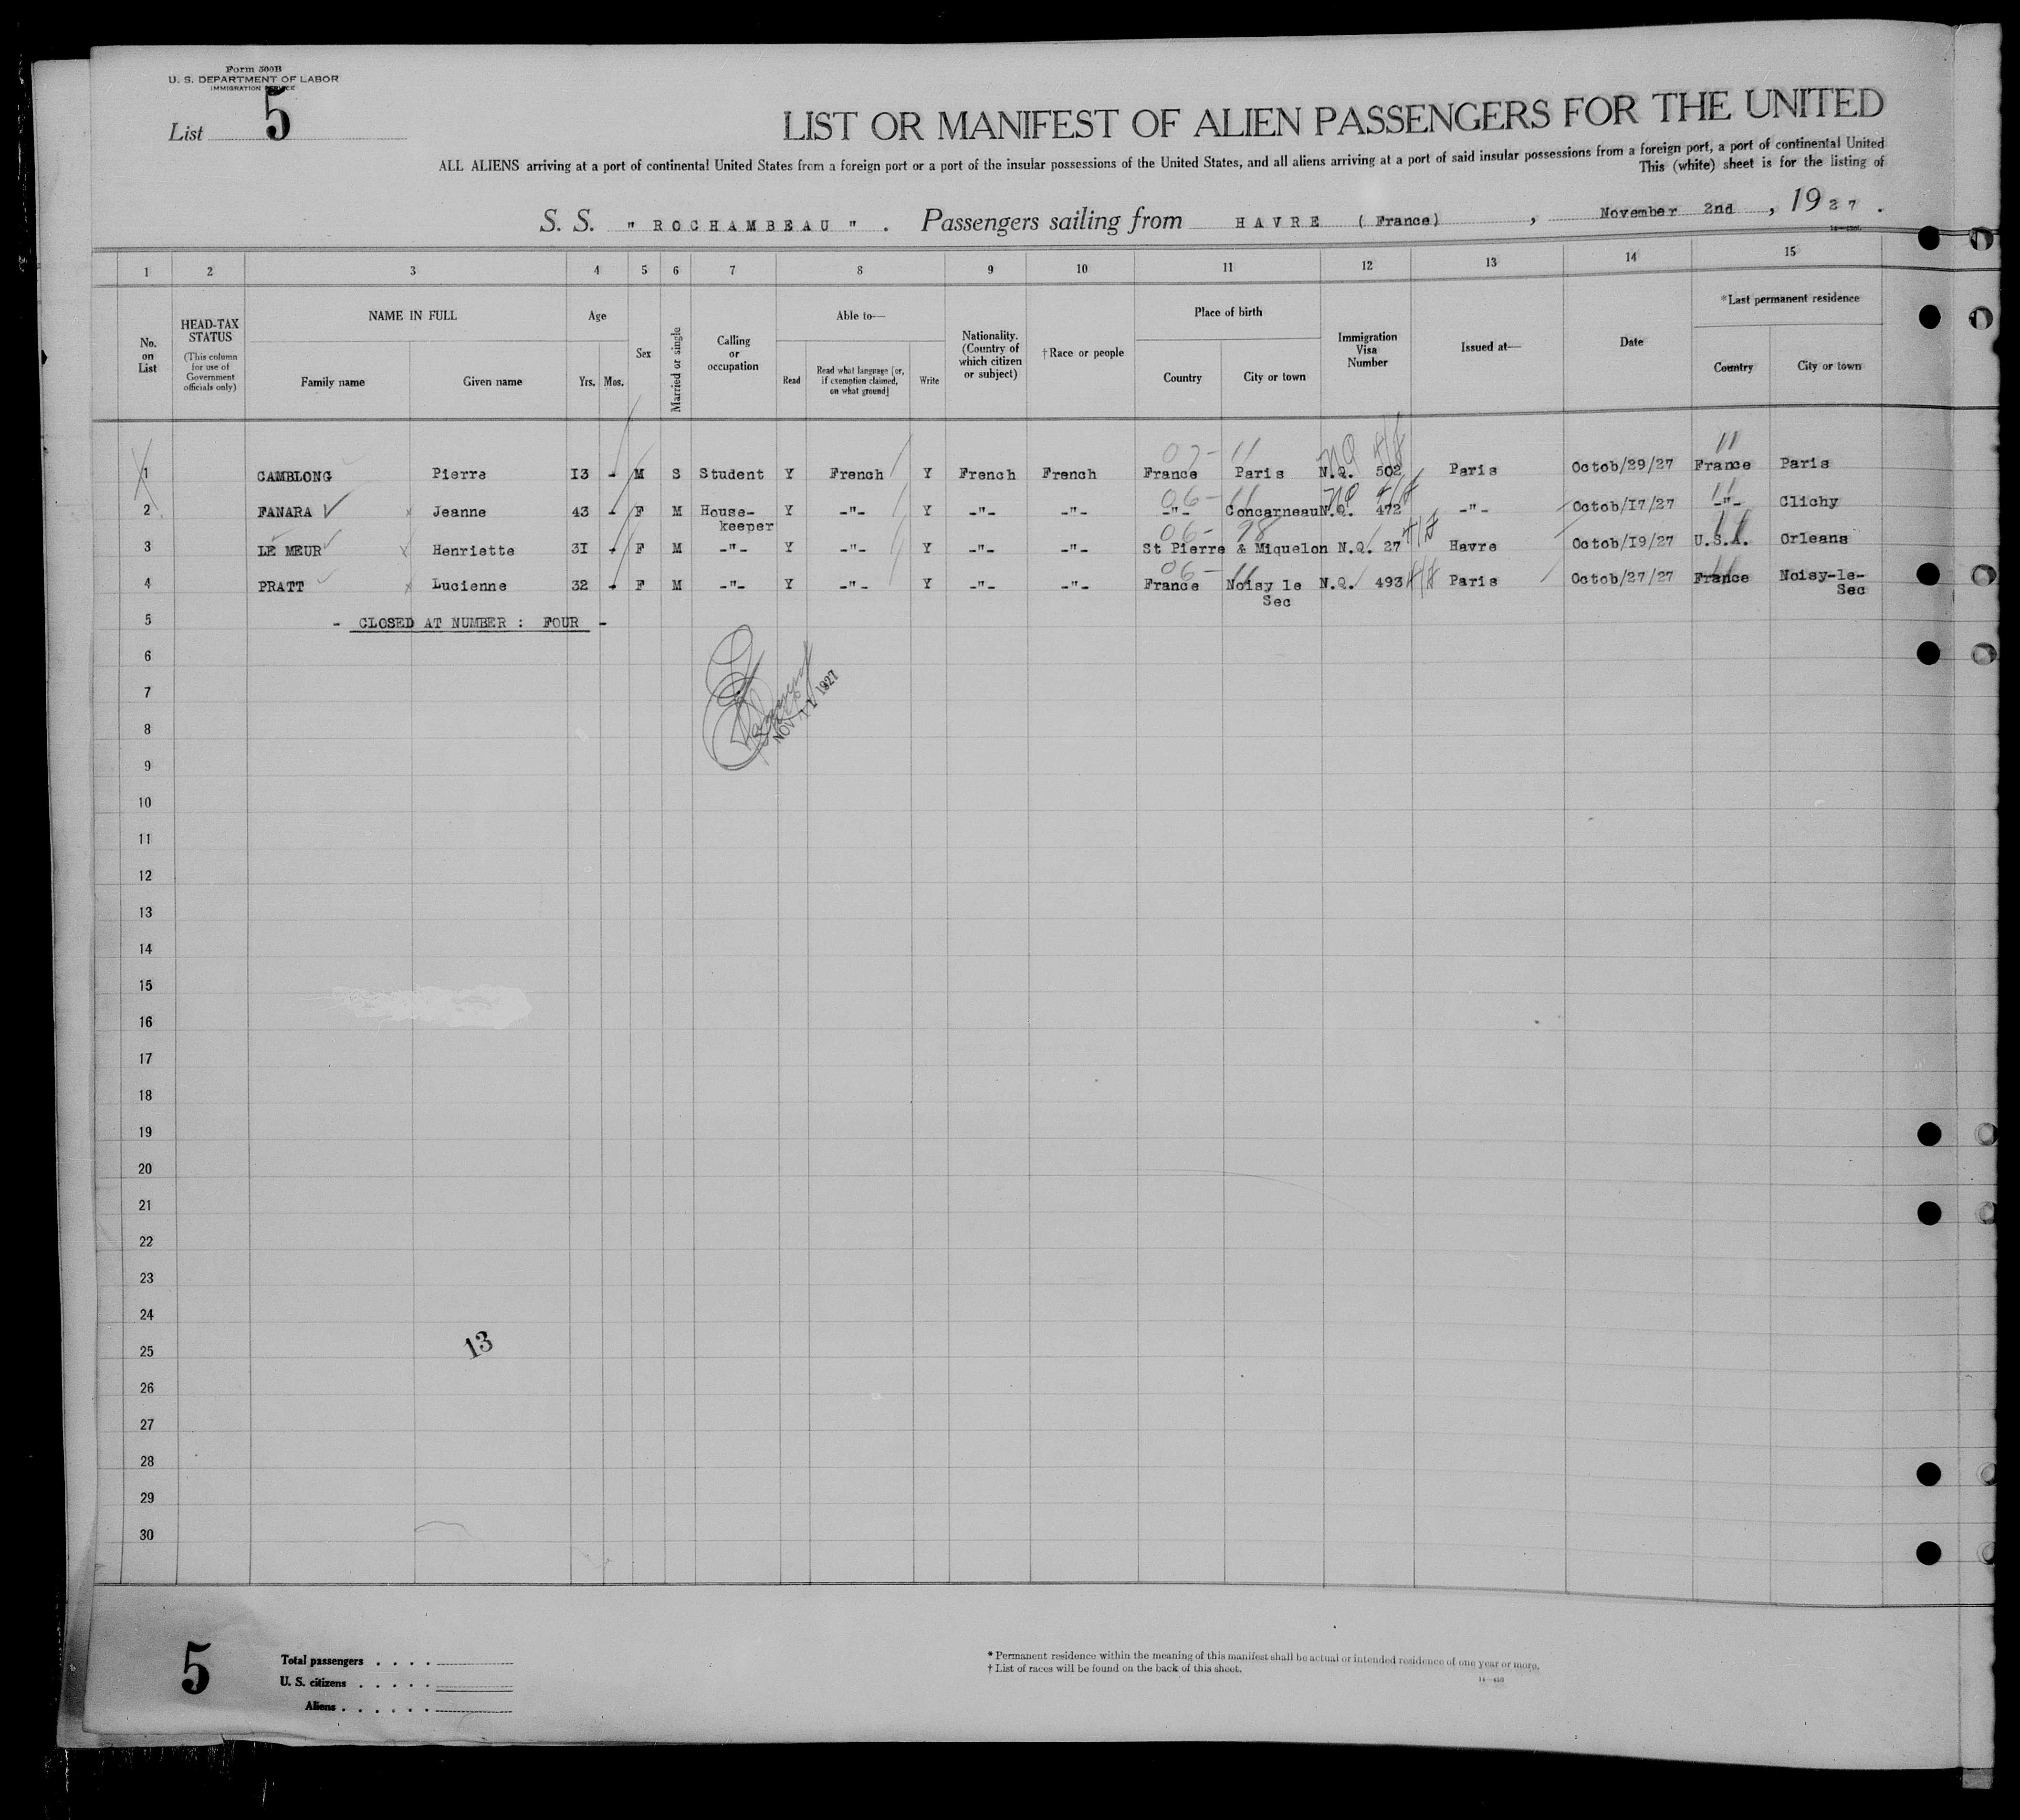 Form 500B
U. S. DEPARTMENT OF LABOR
IMMIGRATION SERVICE
List 5
LIST OR MANIFEST OF ALIEN PASSENGERS FOR THE UNITED
ALL ALIENS arriving at a port of continental United States from a foreign port or a port of the insular possessions of the United States, and all aliens arriving at a port of said insular possessions from a foreign port, a port of continental United
This (white) sheet is for the listing of
S. S. " ROCHAMBEAU " . Passengers sailing from HAVRE ( France) , November 2nd , 1927 .
1 2 3 4 5 6 7 8 9 10 11 12 13 14 15
No. on List
HEAD-TAX STATUS
(This column for use of Government officials only)
NAME IN FULL
Family name Given name
Age
Yrs. Mos.
Sex
Married or single
Calling or occupation
Able to—
Read
Read what language [or, if exemption claimed, on what ground]
Write
Nationality. (Country of which citizen or subject)
†Race or people
Place of birth
Country City or town
Immigration Visa Number
Issued at—
Date
*Last permanent residence
Country City or town
07- 11 NQ 11
1 CAMBLONG Pierre I3 - M S Student Y French Y French French France Paris N.Q. 502 Paris Octob/29/27 France Paris
06- 11 NQ 11
2 FANARA Jeanne 43 - F M House-keeper Y -"- Y -"- -"- -"- Concarneau N.Q. 472 -"- Octob/I7/27 -"- Clichy
06- 98 11
3 LE MEUR Henriette 3I - F M -"- Y -"- Y -"- -"- St Pierre & Miquelon N.Q. 27 Havre Octob/I9/27 U.S.A. Orleans
06- 11 11
4 PRATT Lucienne 32 - F M -"- Y -"- Y -"- -"- France Noisy le Sec N.Q. 493 Paris Octob/27/27 France Noisy-le-Sec
5 - CLOSED AT NUMBER : FOUR -
6
7
NOV 11 1927
8
9
10
11
12
13
14
15
16
17
18
19
20
21
22
23
24
13
25
26
27
28
29
30
5
Total passengers . . . .
U. S. citizens . . . . .
Aliens . . . . . .
* Permanent residence within the meaning of this manifest shall be actual or intended residence of one year or more.
† List of races will be found on the back of this sheet.